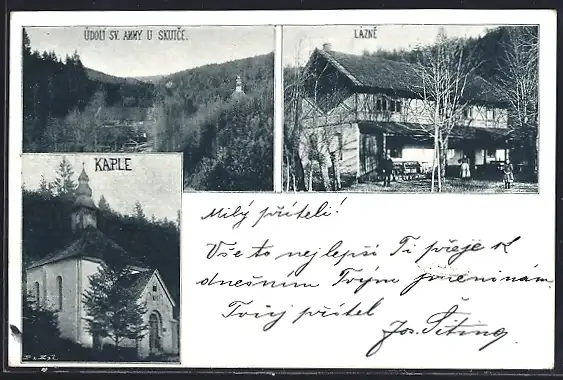 ÚDOLÍ SV. ANNY U SKUTČE.
LÁZNĚ
KAPLE
Milý příteli!
Vše to nejlepší Ti přeje k
dnešním Tvým jmeninám
Tvůj přítel
Jos.